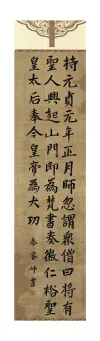 持元貞元年正月師忽謂衆僧曰將有
聖人興起山門即為梵書奏徽仁裕聖
皇太后奉令皇帝為大功
秦睿峰書